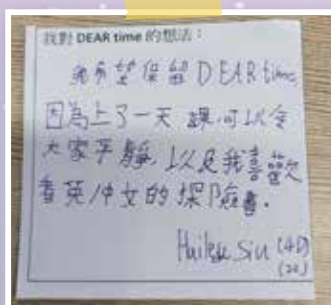 我對 DEAR time 的想法：
我希望保留 DEAR time,
因為上了一天課,可以令
大家平靜,以及我喜歡
看英/中文的探險書.
Hailee Siu (4D)